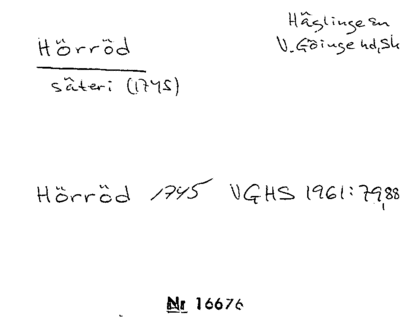 Hörröd
Häglinge sn
V. Göinge hd, Sk
säteri (1745)
Hörröd 1745 VGHS 1961: 79, 88
Nr 16676